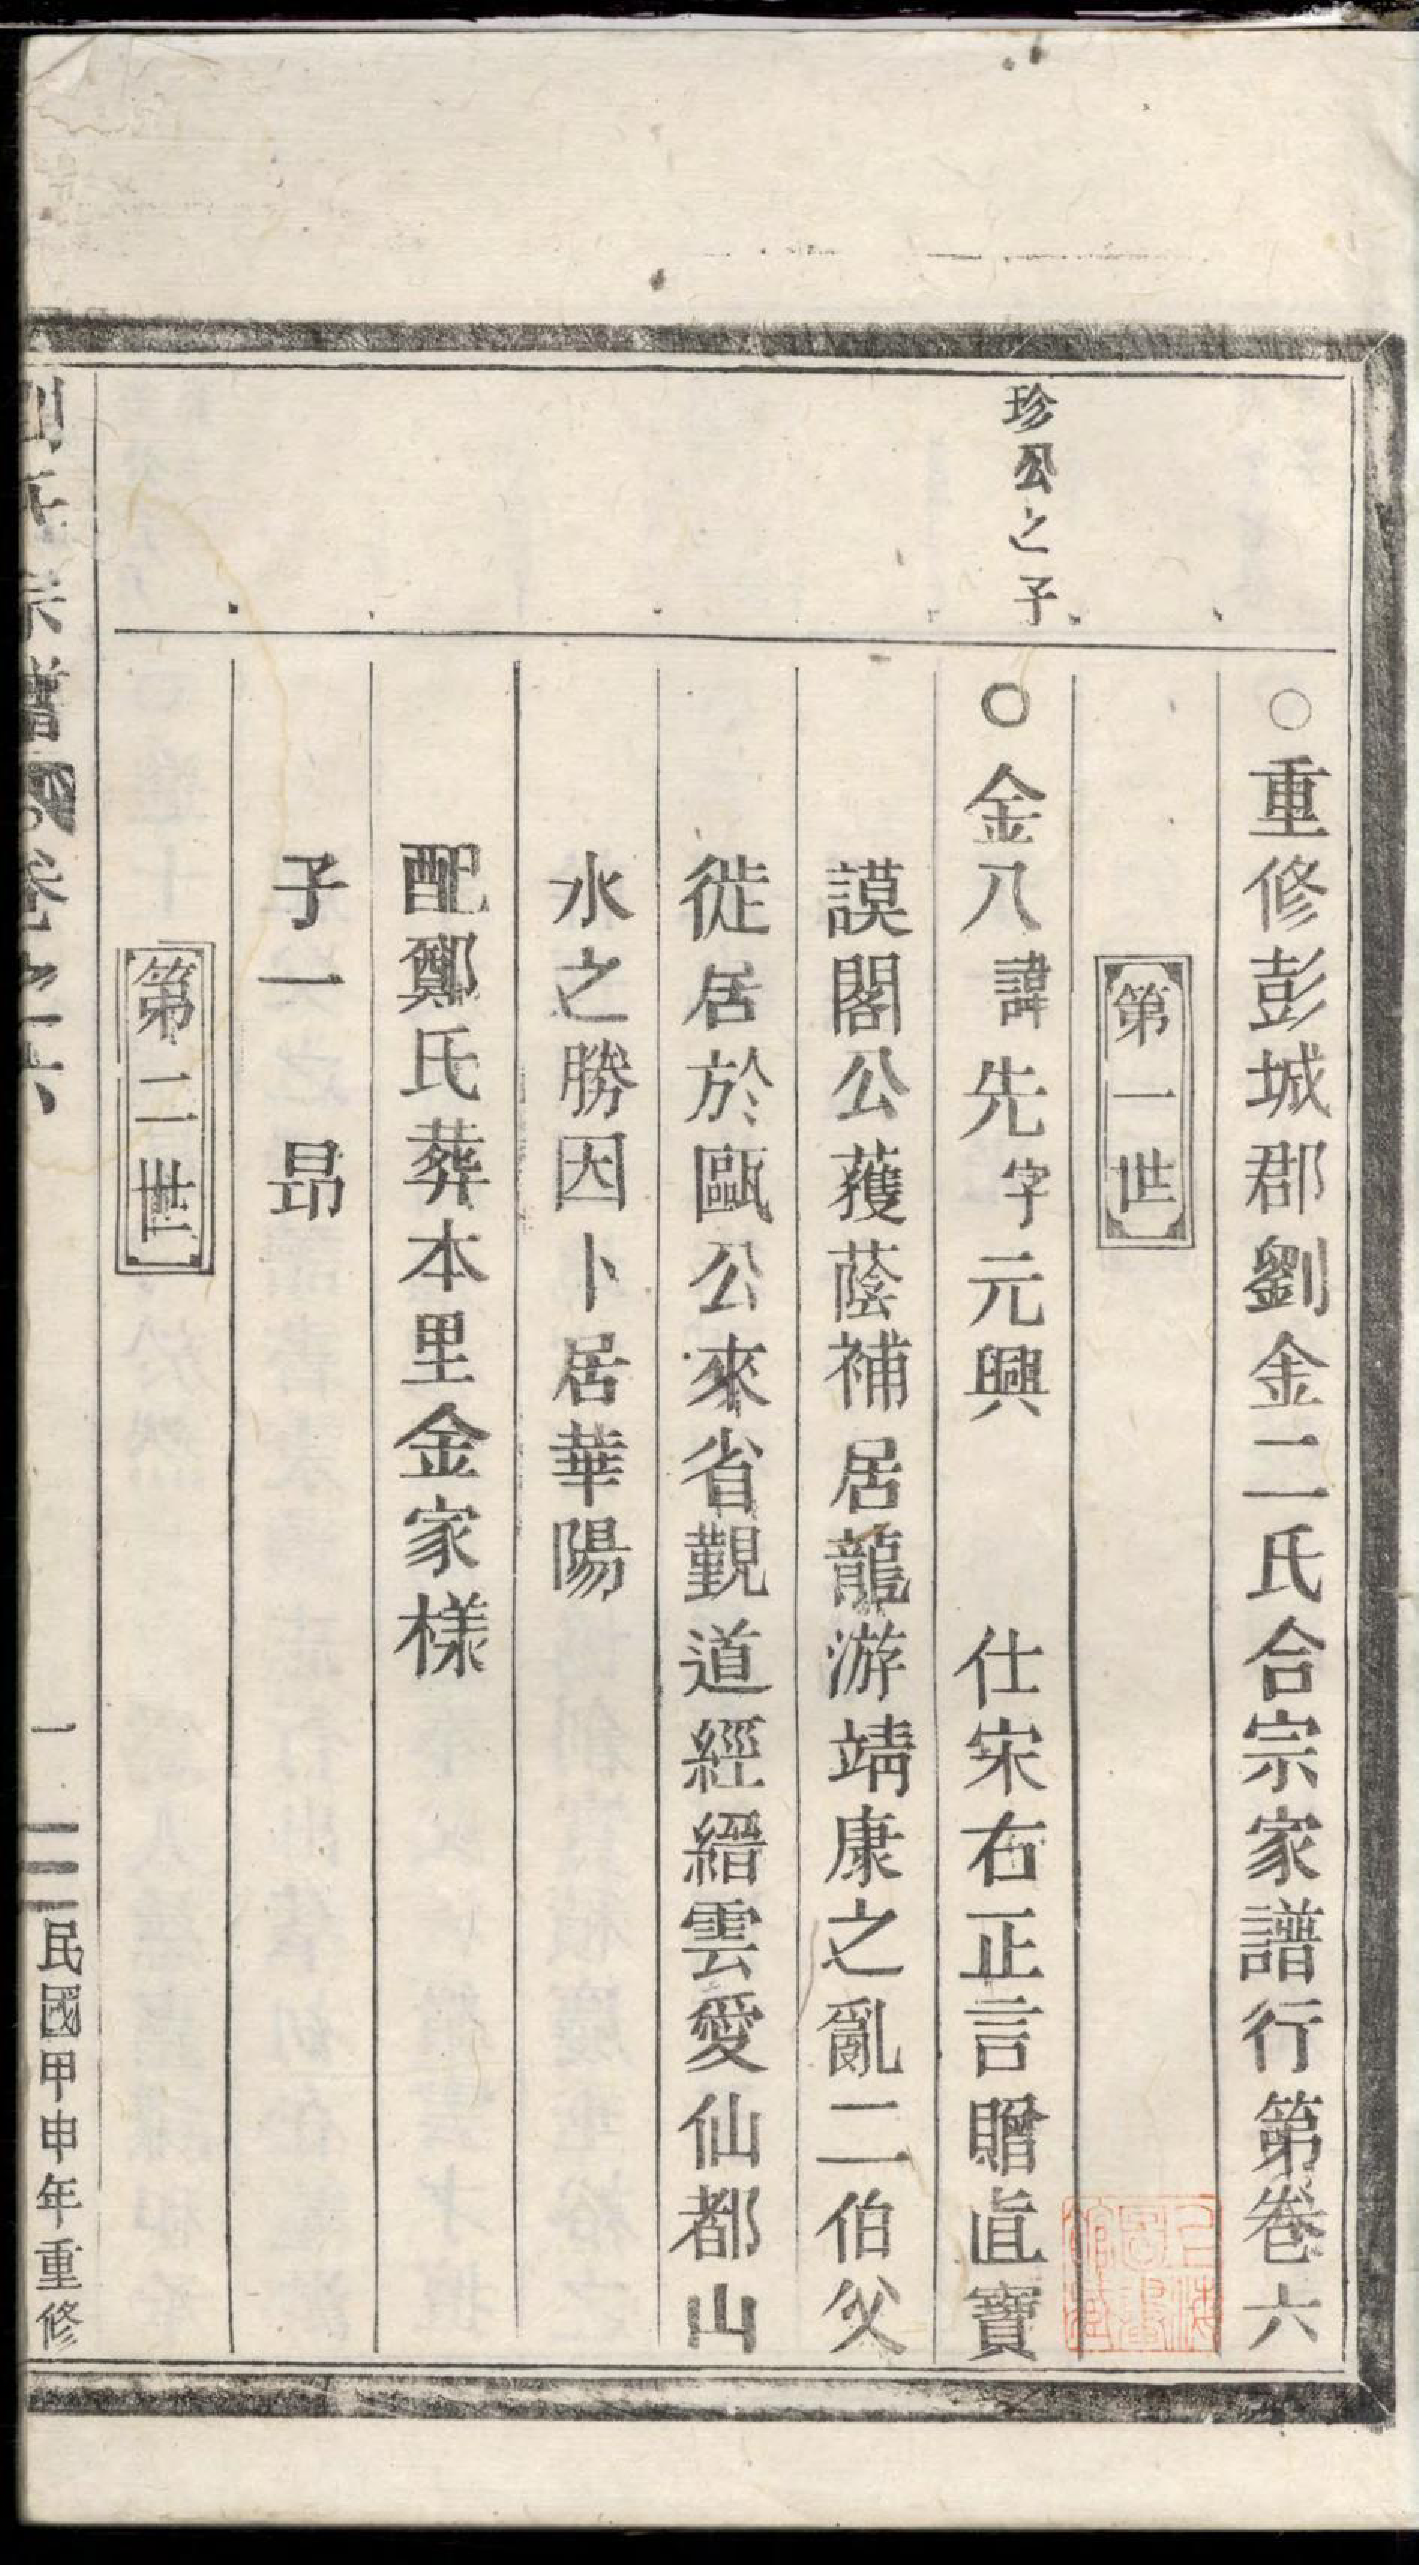 ○重修彭城郡劉金二氏合宗家譜行第卷六
第一世
珍公之子
○金八諱先字元興 仕宋右正言贈直寶
謨閣公蔭補居龍游靖康之亂二伯父
徙居於甌公來省覲道經縉雲愛仙都山
水之勝因卜居華陽
配鄭氏葬本里金家樣
子一 昂
第二世
劉氏宗譜 卷之六
一
民國甲申年重修